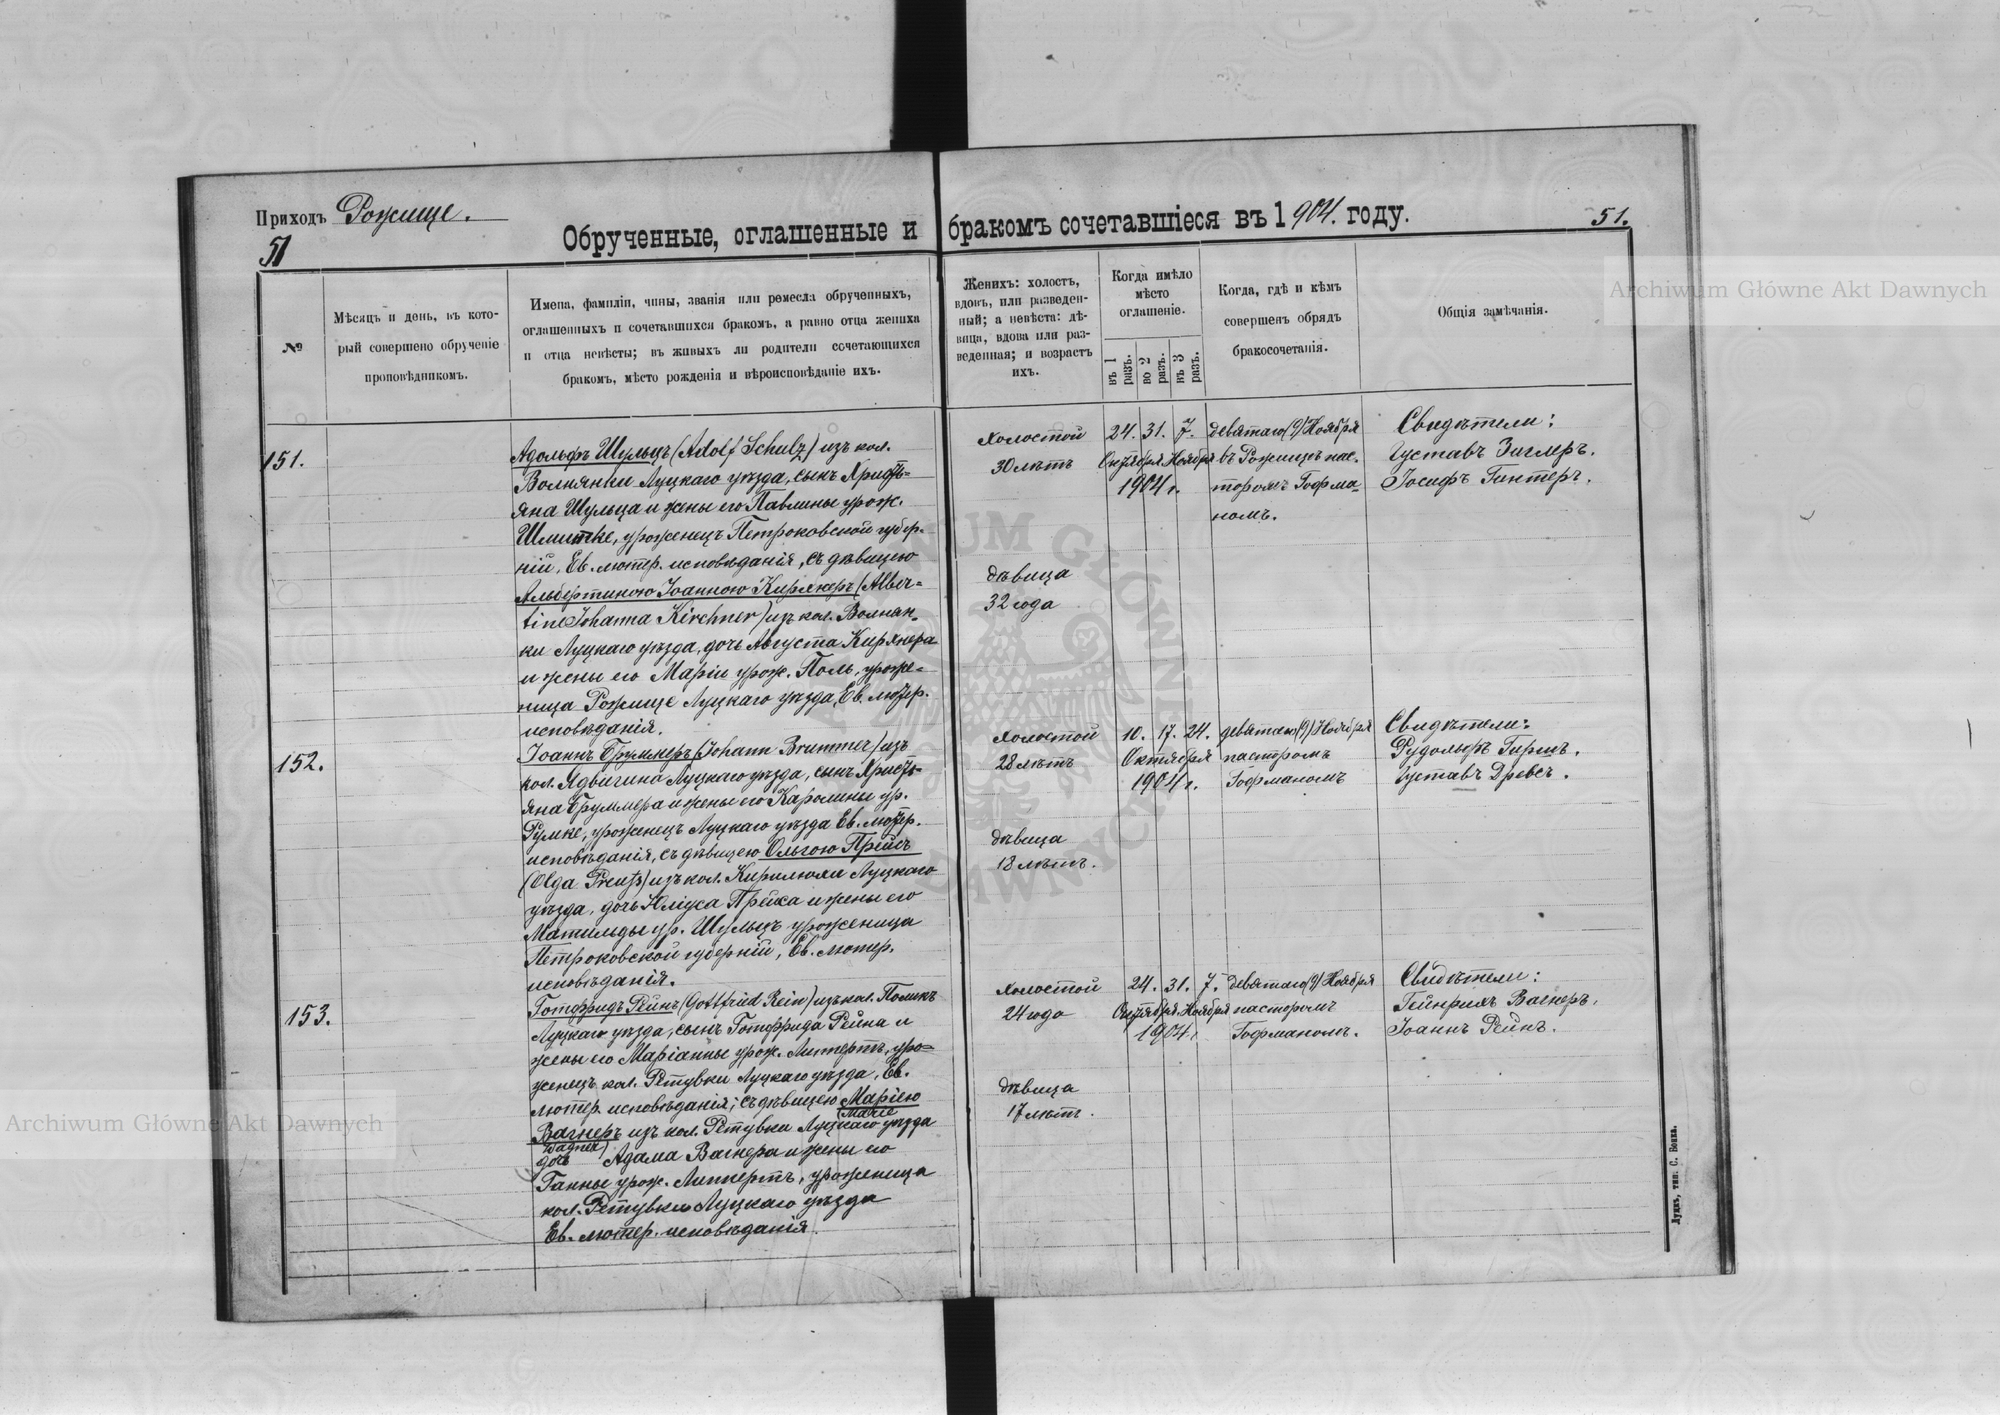 Приходъ Рожище.
51
51.
Обрученные, оглашенные и бракомъ сочетавшіеся въ 1904. году.
№
Мѣсяцъ и день, въ кото-
рый совершено обрученіе
проповѣдникомъ.
Имена, фамиліи, чины, званія или ремесла обрученныхъ,
оглашенныхъ и сочетавшихся бракомъ, а равно отца жениха
и отца невѣсты; въ живыхъ ли родители сочетающихся
бракомъ, мѣсто рожденія и вѣроисповѣданіе ихъ.
Женихъ: холостъ,
вдовъ, или разведен-
ный; а невѣста: дѣ-
вица, вдова или раз-
веденная; и возрастъ
ихъ.
Когда имѣло
мѣсто
оглашеніе.
въ 1
разъ.
во 2
разъ.
въ 3
разъ.
Когда, гдѣ и кѣмъ
совершенъ обрядъ
бракосочетанія.
Общія замѣчанія.
151.
Адольфъ Шульцъ (Adolf Schulz) изъ кол.
Волнянки Луцкаго уѣзда, сынъ Христь-
яна Шульца и жены его Павлины урож.
Шмитке, уроженецъ Петроковской губер-
ніи, Ев. лютер. исповѣданія, съ дѣвицею
Альбертиною Іоанною Кирхнеръ (Alber-
tine Johanna Kirchner) изъ кол. Волнян-
ки Луцкаго уѣзда, дочь Августа Кирхнера
и жены его Маріи урож. Поль, уроже-
ница Рожище Луцкаго уѣзда, Ев. лютер.
исповѣданія.
холостой
30 лѣтъ
дѣвица
32 года
24. 31. 7.
Октября Ноября
1904 г.
девятаго (9) Ноября
въ Рожищѣ пас-
торомъ Гофма-
номъ.
Свидѣтели:
Густавъ Зиглеръ.
Іосифъ Гинтеръ.
152.
Іоаннъ Бруммеръ (Johann Brummer) изъ
кол. Ядвигина Луцкаго уѣзда, сынъ Христь-
яна Бруммера и жены его Каролины ур.
Румке, уроженецъ Луцкаго уѣзда Ев. лютер.
исповѣданія, съ дѣвицею Ольгою Прейсъ
(Olga Preuß) изъ кол. Кирилюли Луцкаго
уѣзда, дочь Юліуса Прейса и жены его
Матильды ур. Шульцъ уроженица
Петроковской губерніи, Ев. лютер.
исповѣданія.
холостой
28 лѣтъ
дѣвица
18 лѣтъ.
10. 17. 24.
Октября
1904 г.
девятаго (9) Ноября
пасторомъ
Гофманомъ
Свидѣтели:
Рудольфъ Гиршъ.
Густавъ Древсъ.
153.
Готфридъ Рейнъ (Gottfried Rein) изъ кол. Полинъ
Луцкаго уѣзда, сынъ Готфрида Рейна и
жены его Маріанны урож. Липертъ, уро-
женецъ кол. Ретувки Луцкаго уѣзда, Ев.
лютер. исповѣданія; съ дѣвицею Маріею
(Marie
Вагнеръ изъ кол. Ретувки Луцкаго уѣзда
Wagner)
дочь Адама Вагнера и жены его
Ганны урож. Липпертъ, уроженица
кол. Ретувки Луцкаго уѣзда
Ев. лютер. исповѣданія.
холостой
24 года
дѣвица
17 лѣтъ.
24. 31. 7.
Октября Ноября
1904.
девятаго (9) Ноября
пасторомъ
Гофманомъ.
Свидѣтели:
Гейнрихъ Вагнеръ,
Іоаннъ Рейнъ.
Луцкъ, тип. С. Бонка.
Archiwum Główne Akt Dawnych
Archiwum Główne Akt Dawnych